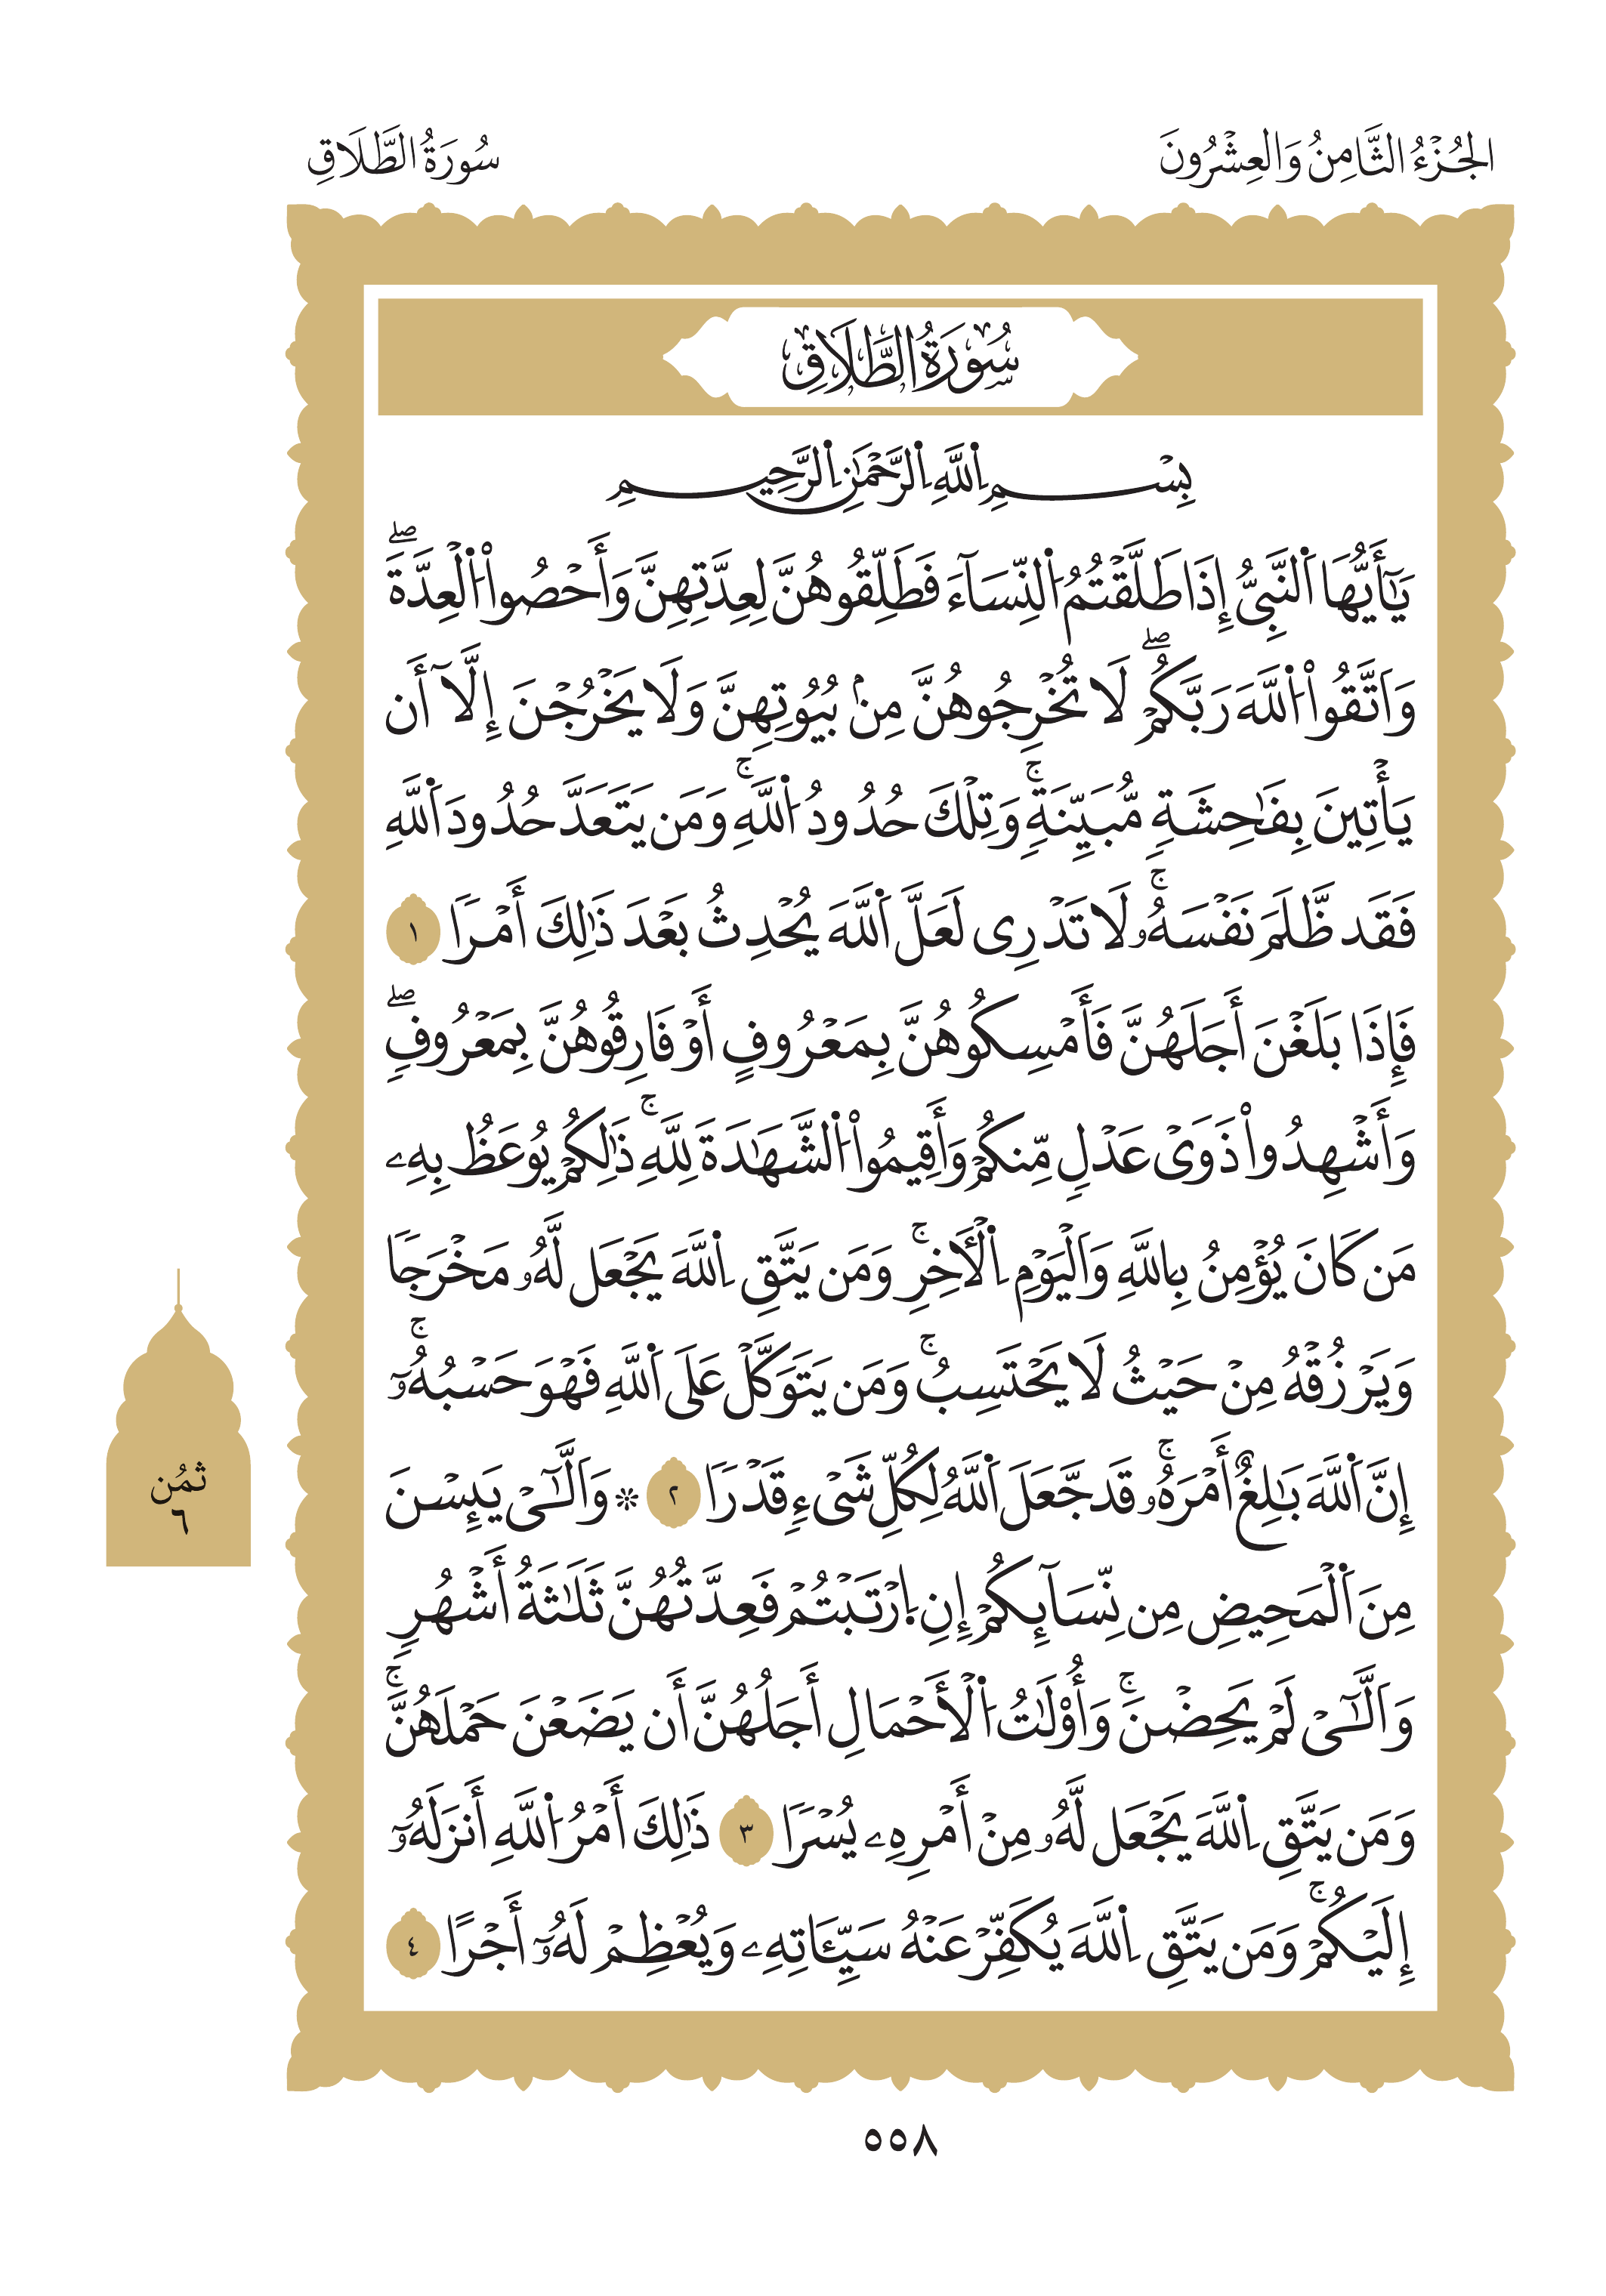 الجُزْءُ الثَّامِنُ وَالعِشْرُونَ
سُورَةُ الطَّلَاقِ
سُورَةُ الطَّلَاقِ
بِسْمِ اِ۬للَّهِ اِ۬لرَّحْمَٰنِ اِ۬لرَّحِيمِ
يَٰٓأَيُّهَا اَ۬لنَّبِيُّ إِذَا طَلَّقْتُمُ اُ۬لنِّسَآءَ فَطَلِّقُوهُنَّ لِعِدَّتِهِنَّ وَأَحْصُواْ اُ۬لْعِدَّةَۖ
وَاَتَّقُواْ اُ۬للَّهَ رَبَّكُمْۖ لَا تُخْرِجُوهُنَّ مِنۢ بُيُوتِهِنَّ وَلَا يَخْرُجْنَ إِلَّآ أَن
يَأْتِينَ بِفَٰحِشَةٖ مُّبَيَّنَةٖۚ وَتِلْكَ حُدُودُ اُ۬للَّهِۚ وَمَن يَتَعَدَّ حُدُودَ اَ۬للَّهِ
فَقَد ظَّلَمَ نَفْسَهُۥۚ لَا تَدْرِى لَعَلَّ اَ۬للَّهَ يُحْدِثُ بَعْدَ ذَٰلِكَ أَمْرٗا ١
فَإِذَا بَلَغْنَ أَجَلَهُنَّ فَأَمْسِكُوهُنَّ بِمَعْرُوفٍ أَوْ فَارِقُوهُنَّ بِمَعْرُوفٖۖ
وَأَشْهِدُواْ ذَوَىْ عَدْلٖ مِّنكُمْ وَأَقِيمُواْ اُ۬لشَّهَٰدَةَ لِلَّهِۚ ذَٰلِكُمْ يُوعَظُ بِهِۦ
مَن كَانَ يُؤْمِنُ بِاللَّهِ وَالْيَوْمِ اِ۬لْأٓخِرِۚ وَمَن يَتَّقِ اِ۬للَّهَ يَجْعَل لَّهُۥ مَخْرَجٗا
وَيَرْزُقْهُ مِنْ حَيْثُ لَا يَحْتَسِبُۚ وَمَن يَتَوَكَّلْ عَلَى اَ۬للَّهِ فَهْوَ حَسْبُهُۥٓۚ
إِنَّ اَ۬للَّهَ بَٰلِغٌ أَمْرَهُۥۚ قَد جَّعَلَ اَ۬للَّهُ لِكُلِّ شَىْءٖ قَدْرٗا ٢ ۞ وَاَلَّٰٓىْ يَئِسْنَ
مِنَ اَ۬لْمَحِيضِ مِن نِّسَآئِكُمْ إِنِ اِ۪رْتَبْتُمْ فَعِدَّتُهُنَّ ثَلَٰثَةُ أَشْهُرٖ
وَاَلَّٰٓىْ لَمْ يَحِضْنَۚ وَأُوْلَٰتُ اُ۬لْأَحْمَالِ أَجَلُهُنَّ أَن يَضَعْنَ حَمْلَهُنَّۚ
وَمَن يَتَّقِ اِ۬للَّهَ يَجْعَل لَّهُۥ مِنْ أَمْرِهِۦ يُسْرٗا ٣ ذَٰلِكَ أَمْرُ اُ۬للَّهِ أَنزَلَهُۥٓ
إِلَيْكُمْۚ وَمَن يَتَّقِ اِ۬للَّهَ يُكَفِّرْ عَنْهُ سَيِّـَٔاتِهِۦ وَيُعْظِمْ لَهُۥٓ أَجْرًا ٤
ثمُن
٦
٥٥٨